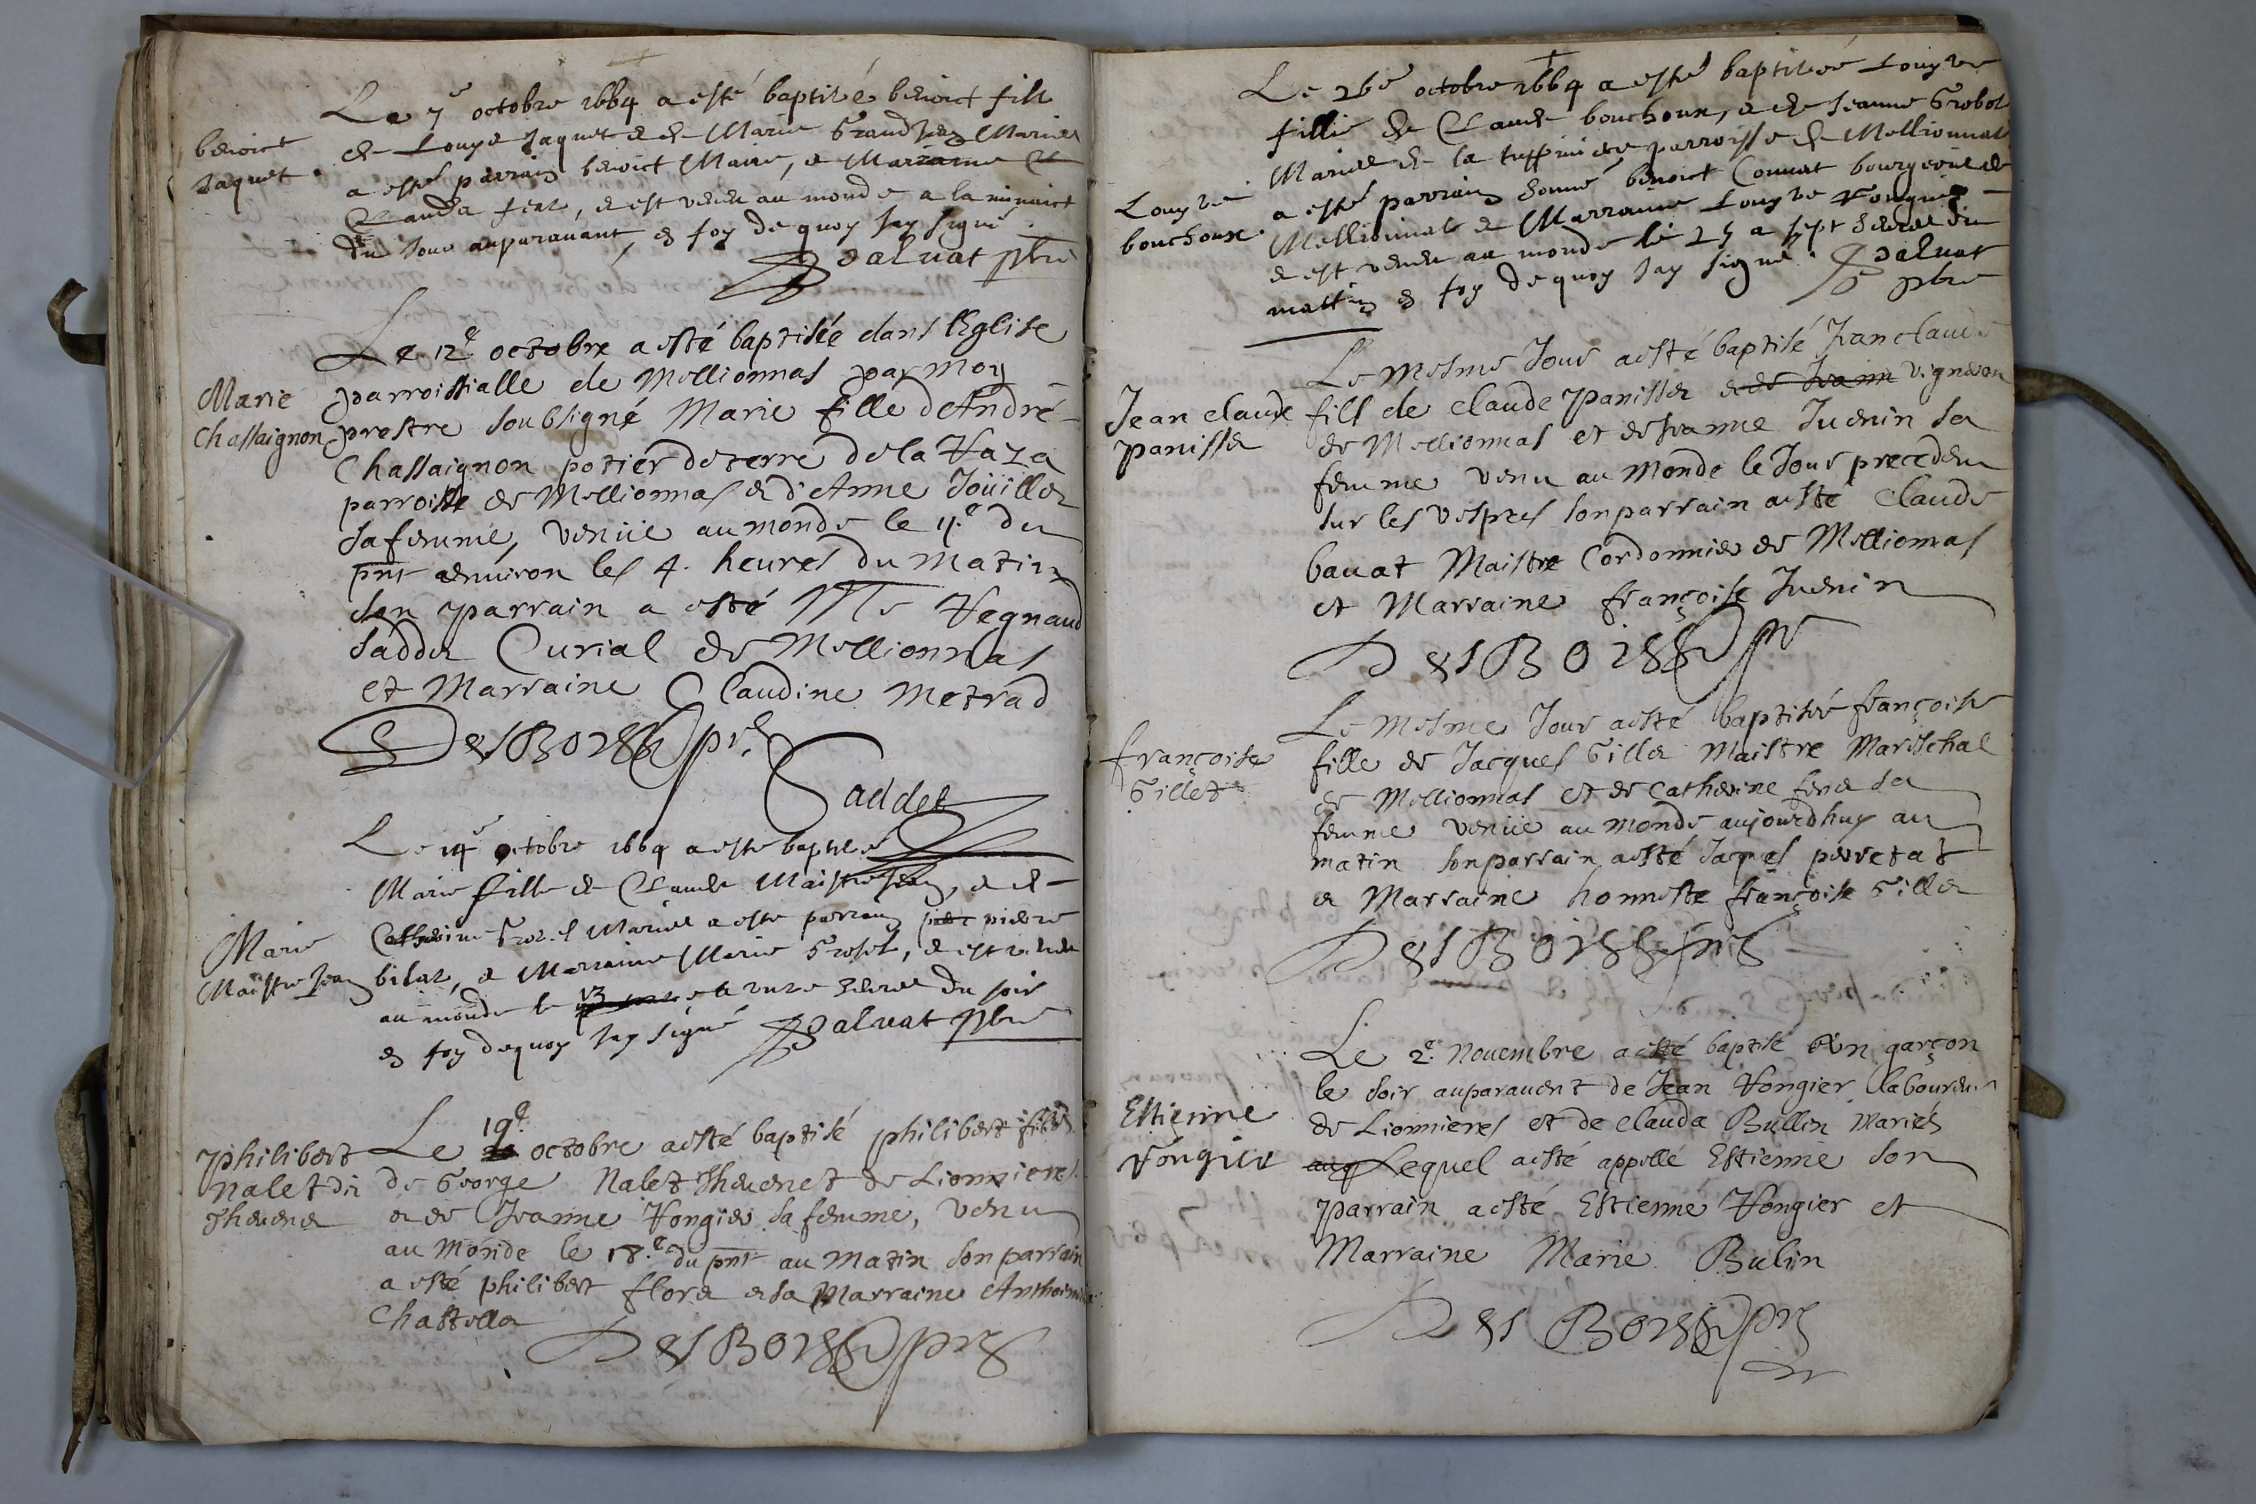 benoict
Jaquet
Le 7e octobre 1664 a esté baptisé benoict fils
de Louys Jaquet & de Marie Grandjean Mariés
a esté parrain benoict Maire, & Marraine
Clauda feat, & est venu au monde a la minuict
du Jour auparavant, en foy de quoy Jay signé
Salvat pbre
Marie
Chassaignon
Le 12e octobre a esté baptisée dans l'Eglise
parroissialle de Mellionnas par moy
prestre soubsigné Marie fille d'André
Chassaignon potier de terre de la Raza
parroisse de Mellionnas & d'Anne Joüillet
sa femme, venüe au monde le 11e du
pnt environ les 4. heures du matin
son parrain a esté Me Regnaud
Saddet Curial de Mellionnas
et Marraine Claudine Metrad
DesBois pre
Saddet
Marie
Maistre Jean
Le 14e octobre 1664 a esté baptisé
Marie fille de Claude Maistre Jean, & de
Catherine Mariés a esté parrain pierre
bilat, & Marraine Marie Grosel, & est venue
au monde le 13 a unze heures du soir
en foy dequoy Jay signé Salvat pbre
Philibert
Nalet dit
Thevenet
Le 19e octobre a esté baptisé philibert fils
de George Nalet Thevenet de Lionnieres
& de Jeanne Vongier sa femme, venu
au Monde le 18e du pnt au Matin son parrain
a esté philibert floret & sa Marraine Anthoinette
Chastella
DesBois pre
Louyse
bouchoux
Le 26e octobre 1664 a esté baptisée Louyse
fillie de Claude bouchoux, & de Jeanne Grobol
Mariés de la tuppiniere parroisse de Mellionnas
a esté parrain honné benoict Connat bourgeois de
Mellionnas & Marraine Louyse Fouques
& est venue au monde le 25 a sept heures du
mattin en foy de quoy Jay signé. Salvat
pbre
Jean claude
panisset
Le Mesme Jour a esté baptisé Jean claude
fils de claude Panisset & de Jeanne vigneron
de Mellionnas et de Jeanne Juenin sa
femme venu au Monde le Jour precedent
sur les vespres son parrain a esté Claude
bavat Maistre Cordonnier de Mellionnas
et Marraine françoise Juenin
DesBois pre
françoise
Gillet
Le Mesme Jour a esté baptisée françoise
fille de Jacques Gillet Maistre Mareschal
de Mellionnas et de Catherine feret sa
femme venüe au monde aujourdhuy au
matin son parrain a esté Jaques perretat
& Marraine honneste françoise Gillet
DesBois pre
Estienne
Vongier
Le 2e Novembre a esté baptisé un garçon
le soir auparavent de Jean Vongier laboureur
de Lionnieres et de clauda Bullin Mariés
auq Lequel a esté appellé Estienne son
parrain a esté Estienne Vongier et
Marraine Marie Bulin
Des Bois pre